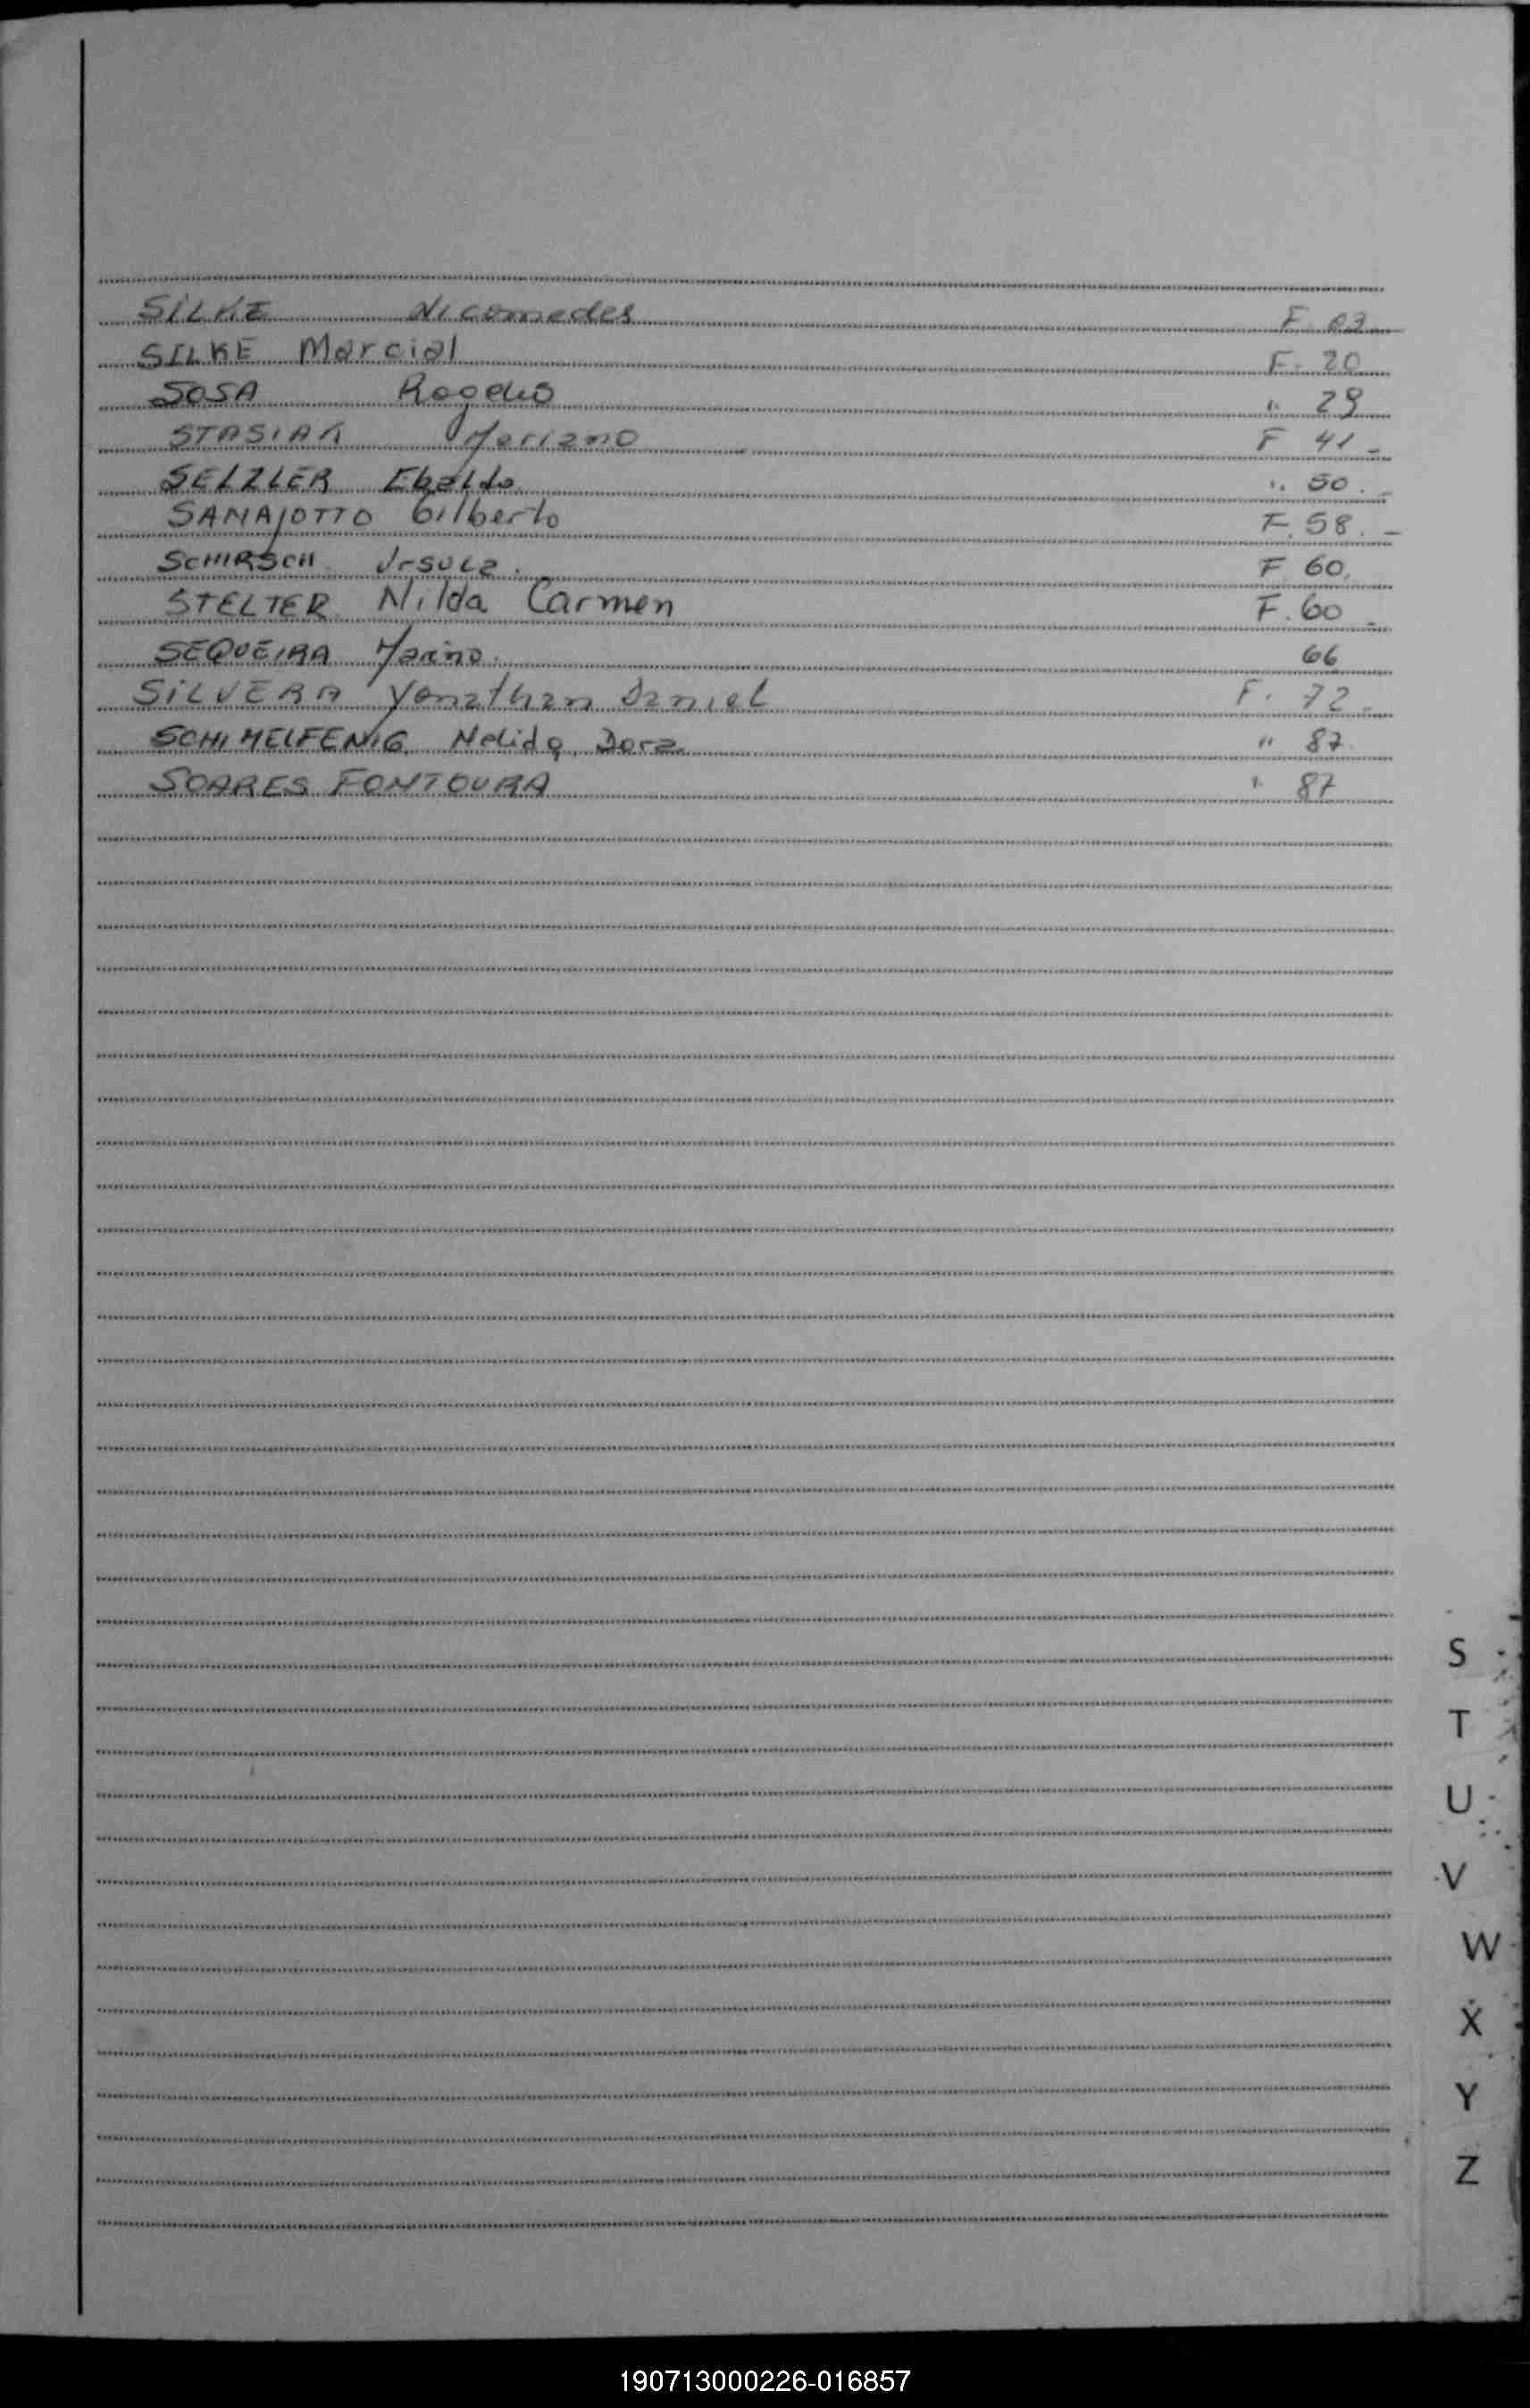 SILKE Nicomedes F. 03
SILKE Marcial F. 20
SOSA Rogelio " 29
STASIAK Mariano F 41 -
SELZLER Ebaldo " 50. -
SANAJOTTO Gilberto F. 58. -
SCHIRSCH Ursula. F 60.
STELTER Nilda Carmen F. 60 -
SEQUEIRA Marino. 66
SILVERA Yonathan Daniel F. 72 -
SCHIMELFENIG Nelida Dora " 87
SOARES FONTOURA " 87
S
T
U
V
W
X
Y
Z
190713000226-016857